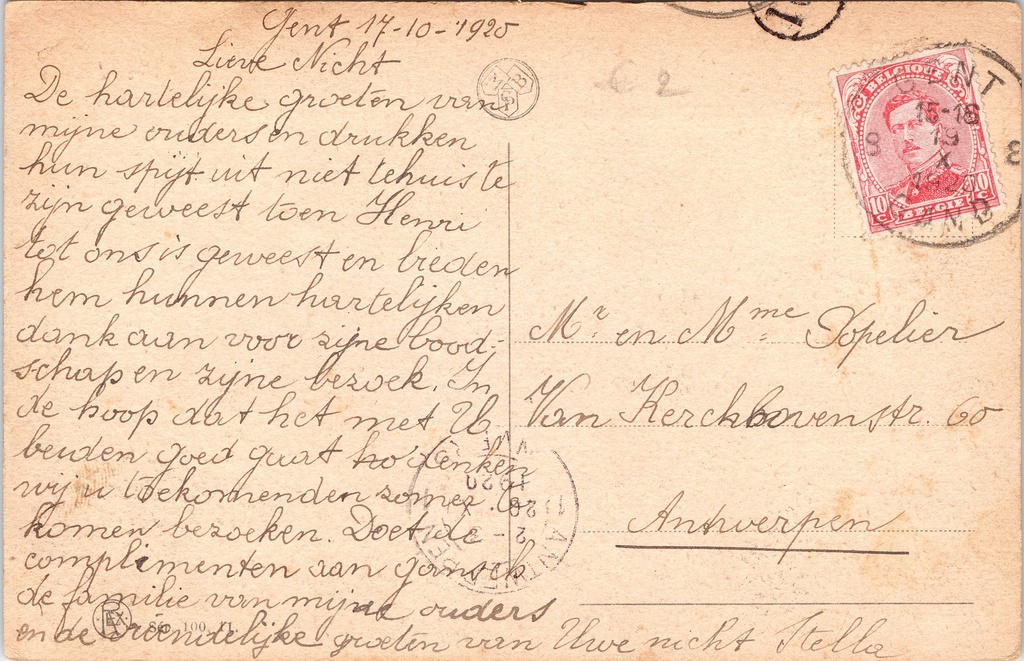 Gent 17-10-1920
Lieve Nicht
De hartelijke groeten van
mijne ouders en drukken
hun spijt uit niet tehuis te
zijn geweest toen Henri
tot ons is geweest en bieden
hem hunnen hartelijken
dank aan voor zijne bood-
schap en zijne bezoek. In
de hoop dat het met U
beiden goed gaat denken
wij u toekomenden zomer
komen bezoeken. Doet de
complimenten aan gansch
de familie van mijne ouders
en de vriendelijke groeten van Uwe nicht Stella
BELGIQUE
10 c 10 c
BELGIË
GENT
15-16
19
X
1920
8 8
Mr en Mme Sopelier
Van Kerckhovenstr. 60
Antwerpen
ANTWERPEN
1920
REX
100